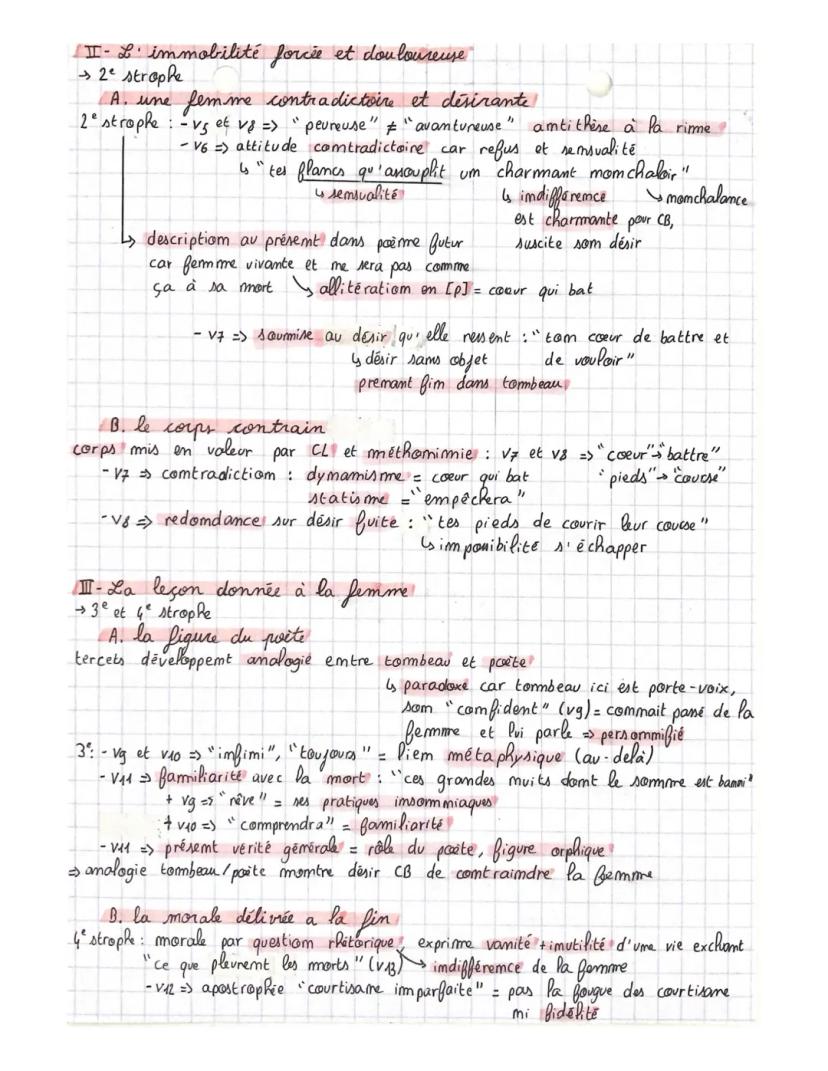 II- L'immobilité forcée et douloureuse
→ 2e strophe
A. une femme contradictoire et désirante
2e strophe : - v5 et v8 => "peureuse" ≠ "avantureuse" antithèse à la rime
- v6 => attitude contradictoire car refus et sensualité
↳ "tes flancs qu'assouplit un charmant nonchaloir"
↳ sensualité ↳ indifférence ↘ nonchalance
est charmante pour CB,
↳ description au présent dans poème futur suscite son désir
car femme vivante et ne sera pas comme
ça à sa mort ↘ allitération en [p] = coeur qui bat
- v7 => soumise au désir qu'elle ressent : "ton coeur de battre et
↳ désir sans objet de vouloir"
prenant fin dans tombeau
B. le corps contrain
corps mis en valeur par CL et méthonimie : v7 et v8 => "coeur"→"battre"
- v7 => contradiction : dynamisme = coeur qui bat "pieds"→"course"
statisme = "empêchera"
- v8 => redondance sur désir fuite : "tes pieds de courir leur course"
↳ impossibilité s'échapper
III- La leçon donnée à la femme
→ 3e et 4e strophe
A. la figure du poète
tercets développent analogie entre tombeau et poète
↳ paradoxe car tombeau ici est porte-voix,
son "confident" (v9) = connait passé de la
femme et lui parle => personnifié
3e: - v9 et v10 => "infini", "toujours" = lien métaphysique (au-delà)
- v11 => familiarité avec la mort : "ces grandes nuits dont le somme est banni"
+ v9 => "rêve" = ses pratiques insomniaques
+ v10 => "comprendra" = familiarité
- v11 => présent vérité générale = rôle du poète, figure orphique
=> analogie tombeau/poète montre désir CB de contraindre la femme
B. la morale délivrée a la fin
4e strophe : morale par question rhétorique, exprime vanité + inutilité d'une vie exchant
"ce que pleurent les morts" (v13) ↘ indifférence de la femme
- v12 => apostrophe "courtisane imparfaite" = pas la fougue des courtisane
ni fidélité